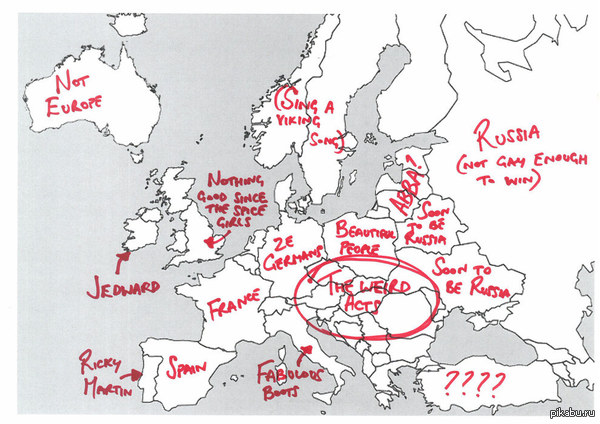 NOT
EUROPE
(SING A
VIKING
SONG)
RUSSIA
(NOT GAY ENOUGH
TO WIN)
NOTHING
GOOD SINCE
THE SPICE
GIRLS
ABBA?
SOON
TO BE
RUSSIA
BEAUTIFUL
PEOPLE
ZE
GERMANS
JEDWARD
SOON TO
BE RUSSIA
THE WEIRD
ACTS
FRANCE
RICKY
MARTIN
SPAIN
FABULOUS
BOOTS
????
pikabu.ru